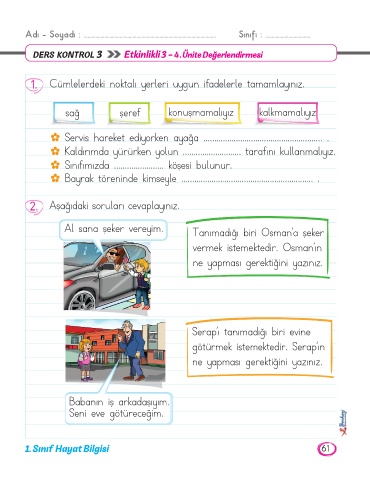 Adı - Soyadı : ........................................ Sınıfı : ..............
DERS KONTROL 3 Etkinlikli 3 - 4. Ünite Değerlendirmesi
1. Cümlelerdeki noktalı yerleri uygun ifadelerle tamamlayınız.
sağ şeref konuşmamalıyız kalkmamalıyız
Servis hareket ediyorken ayağa ........................................ .
Kaldırımda yürürken yolun .................... tarafını kullanmalıyız.
Sınıfımızda .................. köşesi bulunur.
Bayrak töreninde kimseyle ............................................ .
2. Aşağıdaki soruları cevaplayınız.
Al sana şeker vereyim.
Tanımadığı biri Osman'a şeker
vermek istemektedir. Osman'ın
ne yapması gerektiğini yazınız.
Serap'ı tanımadığı biri evine
götürmek istemektedir. Serap'ın
ne yapması gerektiğini yazınız.
Babanın iş arkadaşıyım.
Seni eve götüreceğim.
1. Sınıf Hayat Bilgisi 61